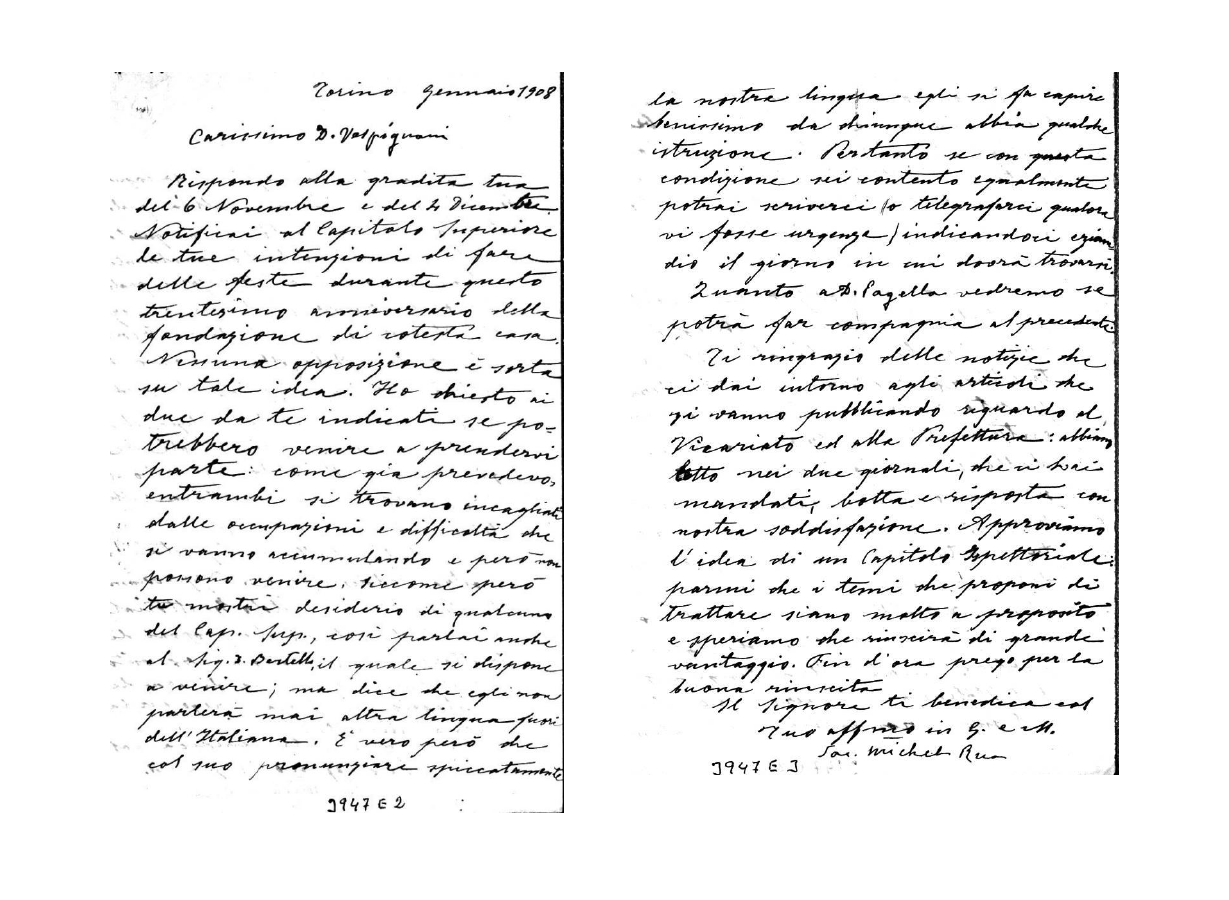 Torino Gennaio 1908
Carissimo D. Vespignani
Rispondo alla gradita tua
del 6 Novembre e del 21 Dicembre
Notificai al Capitolo Superiore
le tue intenzioni di fare
delle feste durante questo
trentesimo anniversario della
fondazione di cotesta casa.
Nessuna opposizione è sorta
su tale idea. Ho chiesto ai
due da te indicati se po-
trebbero venire a prendervi
parte: come già prevedevo,
entrambi si trovano incagliati
dalle occupazioni e difficoltà che
si vanno accumulando e però non
possono venire. Siccome però
tu mostri desiderio di qualcuno
del Cap. Sup., così parlai anche
al Sig. D. Bertello, il quale si dispone
a venire; ma dice che egli non
parlerà mai altra lingua fuori
dell'Italiana. È vero però che
col suo pronunziare spiccatamente
J947 E 2
la nostra lingua egli si fa capire
benissimo da chiunque abbia qualche
istruzione. Pertanto se con questa
condizione sei contento egualmente
potrai scriverci (o telegrafarci qualora
vi fosse urgenza) indicandoci ezian
dio il giorno in cui dovrà trovarsi.
Quanto a D. Pagella vedremo se
potrà far compagnia al precedente.
Ti ringrazio delle notizie che
ci dai intorno agli articoli che
si vanno pubblicando riguardo al
Vicariato ed alla Prefettura: abbiamo
letto nei due giornali, che ci hai
mandati, botta e risposta con
nostra soddisfazione. Approviamo
l'idea di un Capitolo Ispettoriale:
parmi che i temi che proponi di
trattare siano molto a proposito
e speriamo che riuscirà di grande
vantaggio. Fin d'ora prego per la
buona riuscita
Il Signore ti benedica col
Tuo affmo in G. e M.
Sac. Michel Rua
J947 E 3